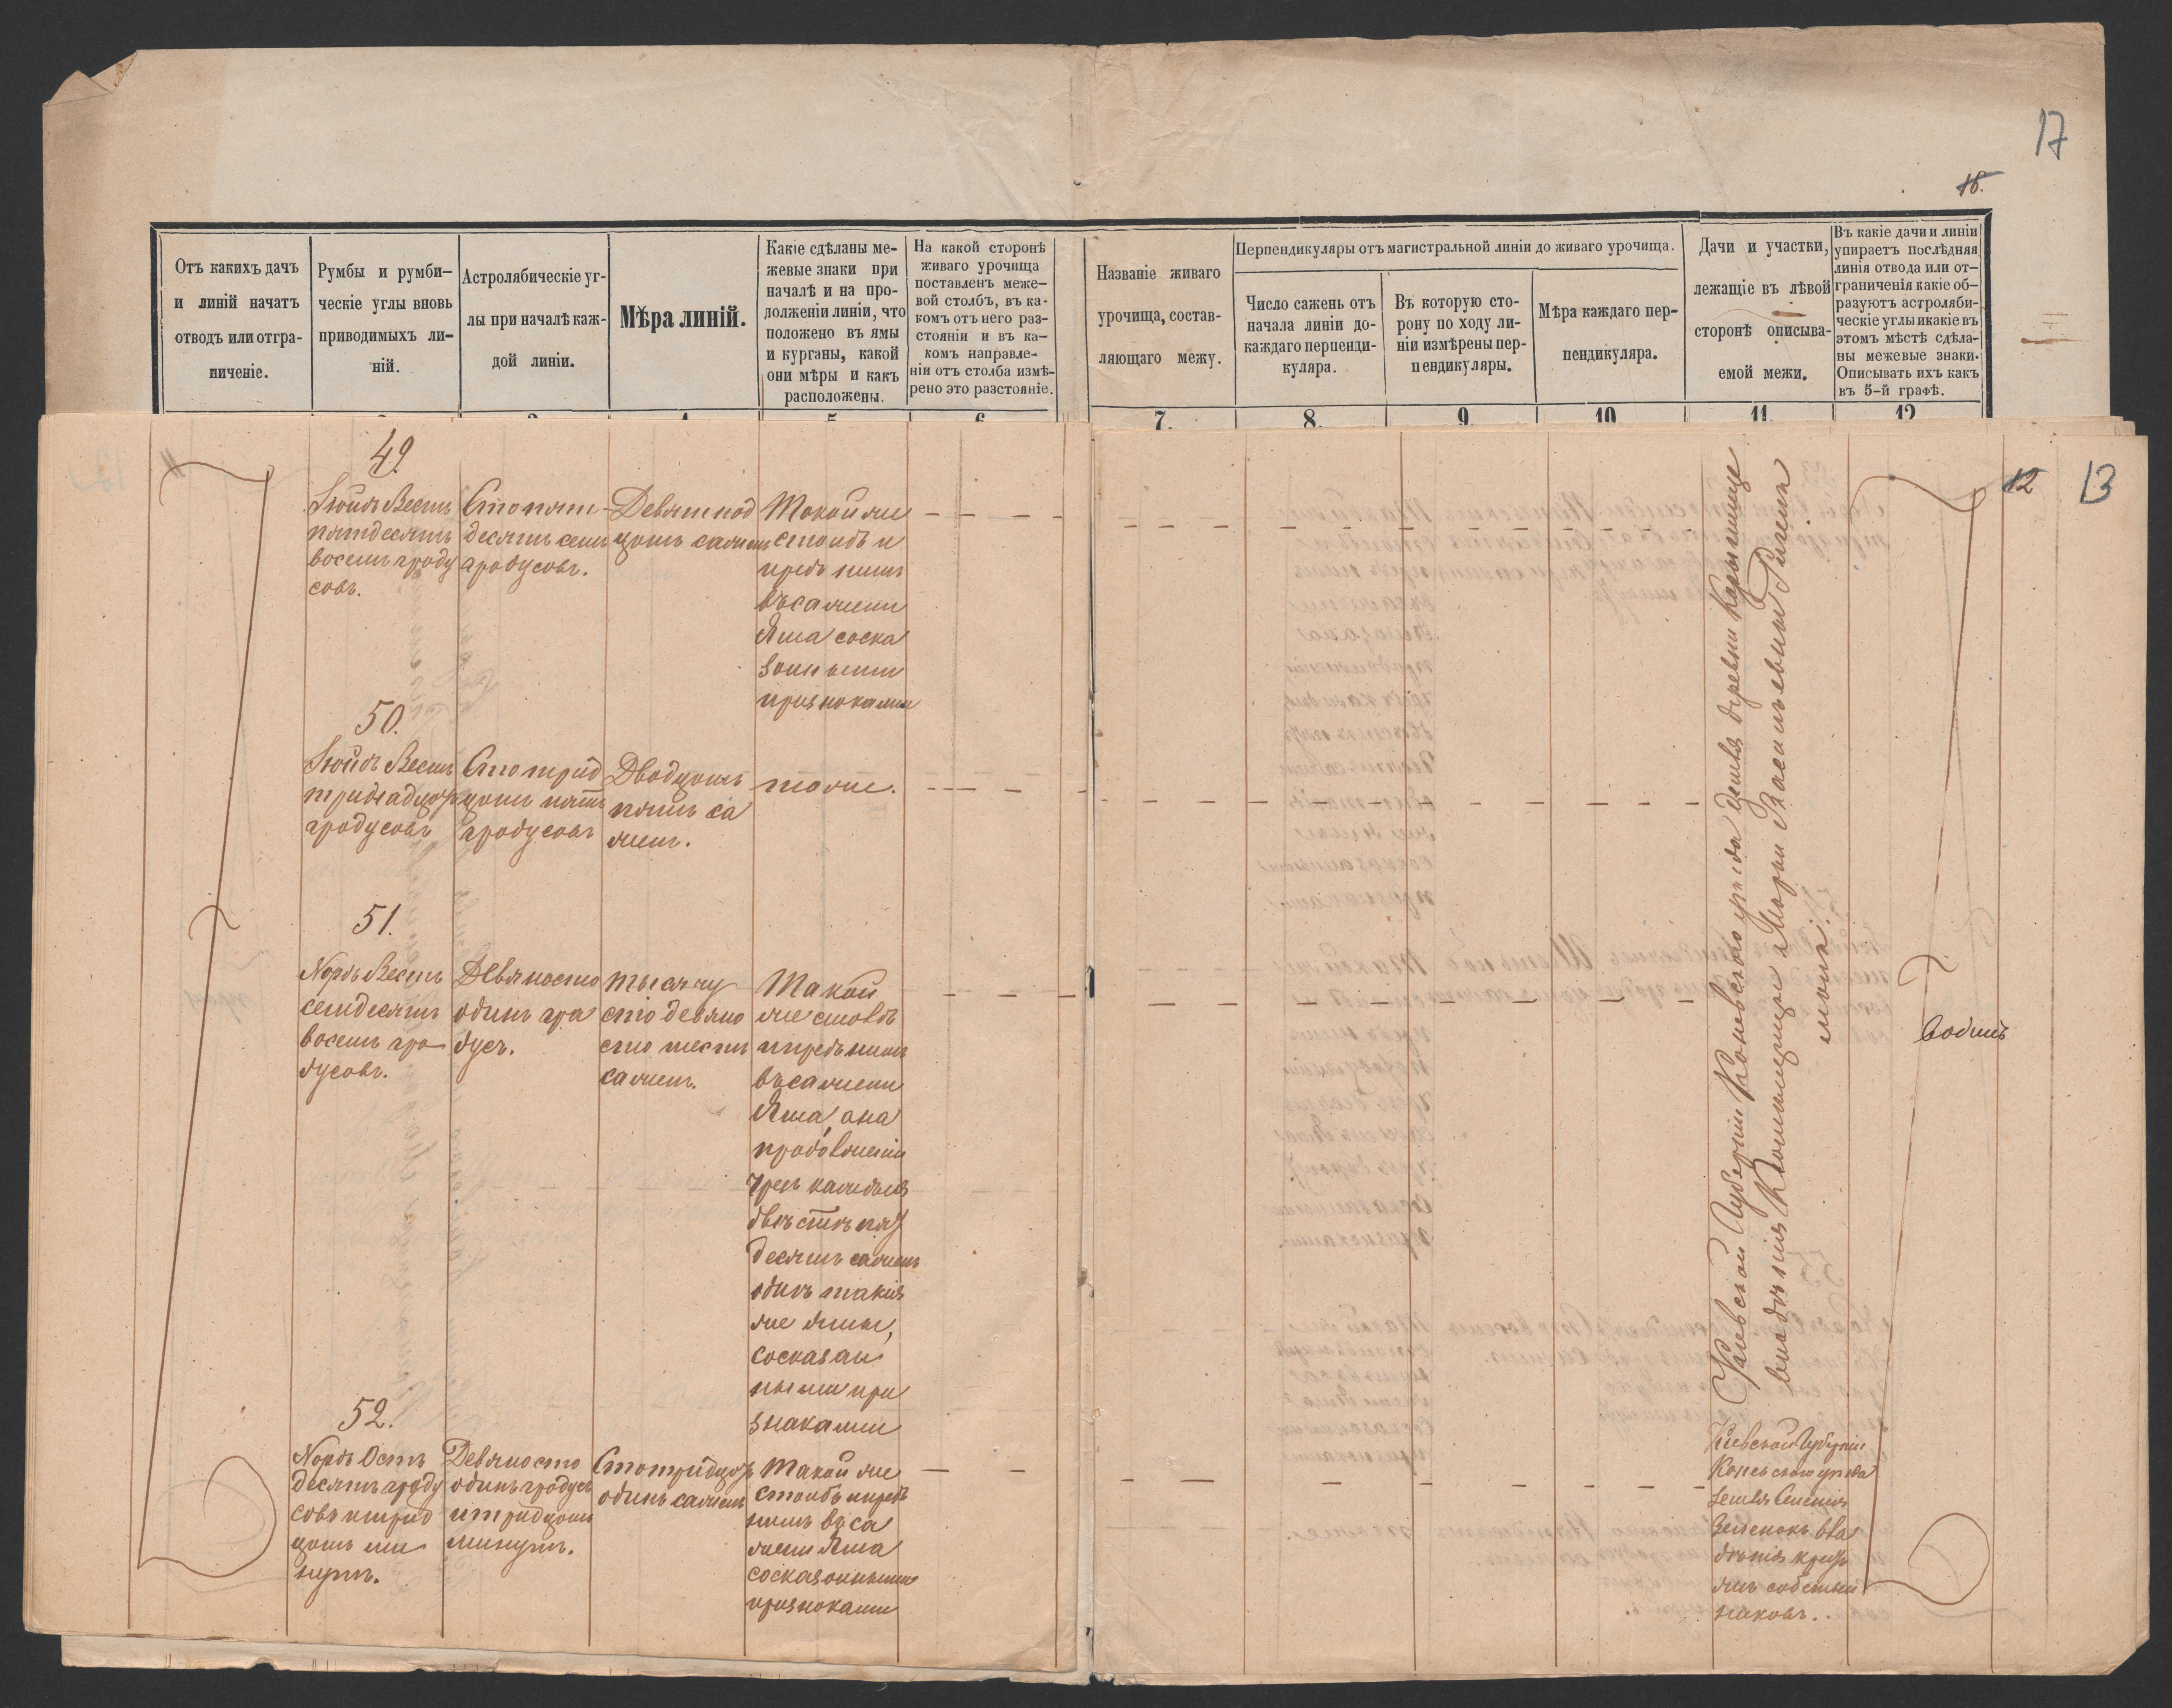 17
18.
Отъ какихъ дачъ
и линій начатъ
отводъ или отгра-
ниченіе.
Румбы и румби-
ческіе углы вновь
приводимыхъ ли-
ній.
Астролябическіе уг-
лы при началѣ каж-
дой линіи.
Мѣра линій.
Какіе сдѣланы ме-
жевые знаки при
началѣ и на про-
долженіи линіи, что
положено въ ямы
и курганы, какой
они мѣры и какъ
расположены.
На какой сторонѣ
живаго урочища
поставленъ меже-
вой столбъ, въ ка-
комъ отъ него раз-
стояніи и въ ка-
комъ направле-
ніи отъ столба измѣ-
рено это разстояніе.
Названіе живаго
урочища, состав-
ляющаго межу.
Перпендикуляры отъ магистральной линіи до живаго урочища.
Число сажень отъ
начала линіи до-
каждаго перпенди-
куляра.
Въ которую сто-
рону по ходу ли-
ніи измѣрены пер-
пендикуляры.
Мѣра каждаго пер-
пендикуляра.
Дачи и участки,
лежащіе въ лѣвой
сторонѣ описыва-
емой межи.
Въ какіе дачи и линіи
упираетъ послѣдняя
линія отвода или от-
граниченія какіе об-
разуютъ астроляби-
ческіе углы икакіе въ
этомъ мѣстѣ сдѣла-
ны межевые знаки.
Описывать ихъ какъ
въ 5-й графѣ.
7.
8.
9.
10
11
12
12
13
49.
Зюйдъ Вестъ
пятдесятъ
восемь граду
совъ.
Сто пять
десятъ семь
градусовъ.
Девятнад
цать сажень
Такой же
столбъ и
предъ нимъ
въ сажени
Яма соска
занными
признаками
50.
Зюйдъ Вестъ
тринадцать
градусовъ
Сто трид
цать пять
градусовъ
Двадцать
пять са
жень.
тоже.
51.
Nордъ Вестъ
семдесятъ
восемь гра
дусовъ.
Девяносто
одинъ гра
дусъ.
тысячу
сто девяно
сто шесть
сажень.
Такой
же столбъ
ипредъ нимъ
въ сажени
Яма, она
продолженіи
чрезъ каждыя
двѣстѣ пять
десятъ сажень
одинъ такія
же ямы,
сосказан
ными при
знаками
52.
Nордъ Остъ
десять граду
совъ итрид
цать ми
нутъ.
Девяносто
одинъ градусъ
итридцать
минутъ.
Сто тридцать
одинъ сажень
Такой же
столбъ ипредъ
нимъ въ са
жени Яма
сосказанными
признаками
Кіевской Губерніи Каневскаго уѣзда Земля деревни
владѣнія Помѣщицы Маріи Васильевны
Кіевской Губерніи
Каневскаго уѣзда
Земля Селенія
Зеленокъ вла
дѣнія крестья
янъ собствен
никовъ.